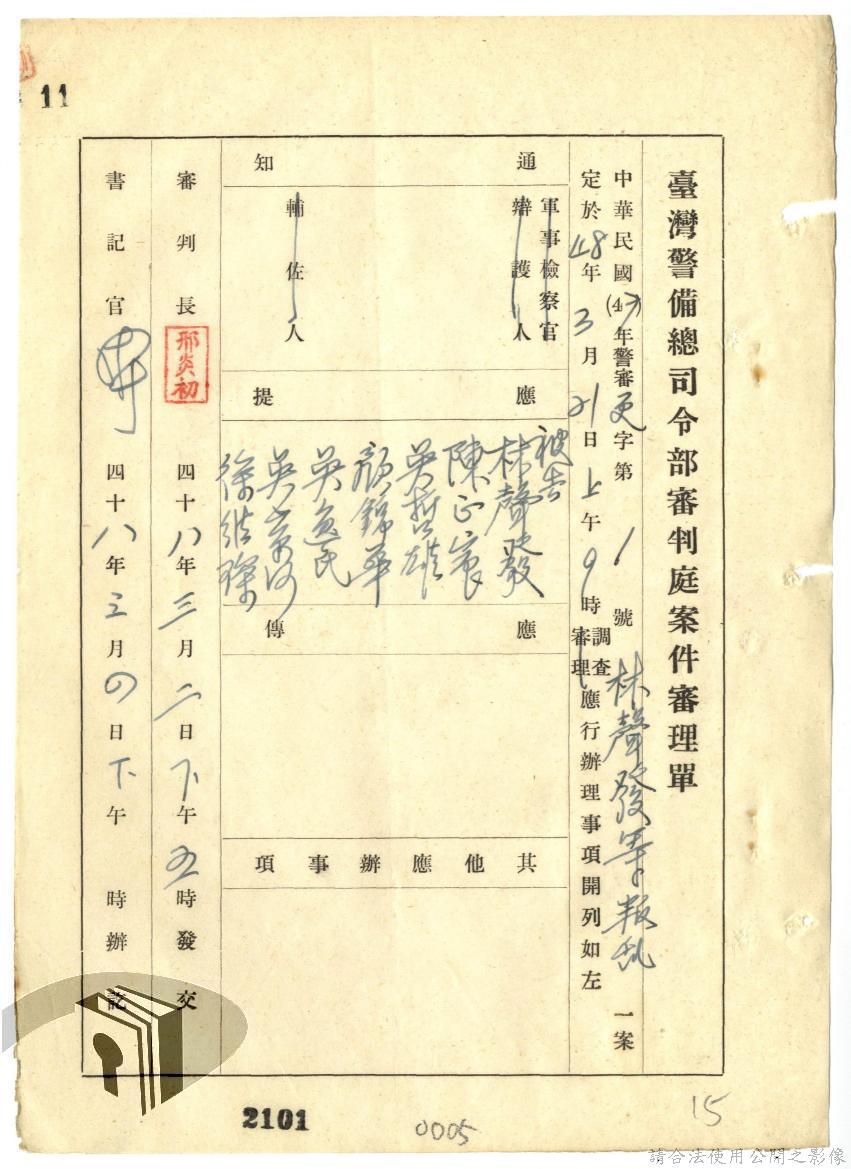 11
臺灣警備總司令部審判庭案件審理單
中華民國(47)年警審更字第1號林聲發等叛乱一案
定於48年3月21日上午9時調查審理應行辦理事項開列如左
通知
軍事檢察官
辯護人
輔佐人
應提
被告
林聲發
陳正宸
吳哲雄
顏錦華
吳逸民
吳崇河
徐
應傳
其他應辦事項
審判長
邢炎初
四十八年三月二日下午五時發交
書記官
四十八年三月四日下午時辦訖
2101
0005
15
請合法使用公開之影像